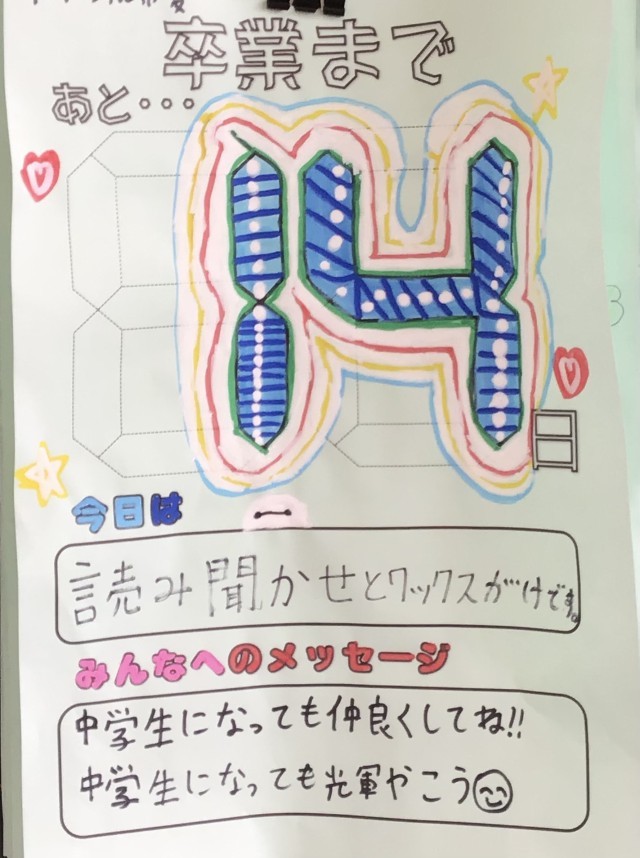 卒業まで
あと・・・
14
日
今日は
読み聞かせとワックスがけです。
みんなへのメッセージ
中学生になっても仲良くしてね!!
中学生になっても光輝やこう